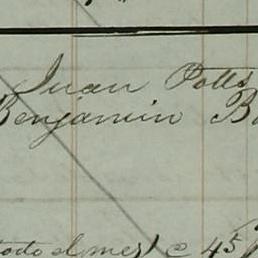 Juan Potts
Benjamin
todo el mes) c 45